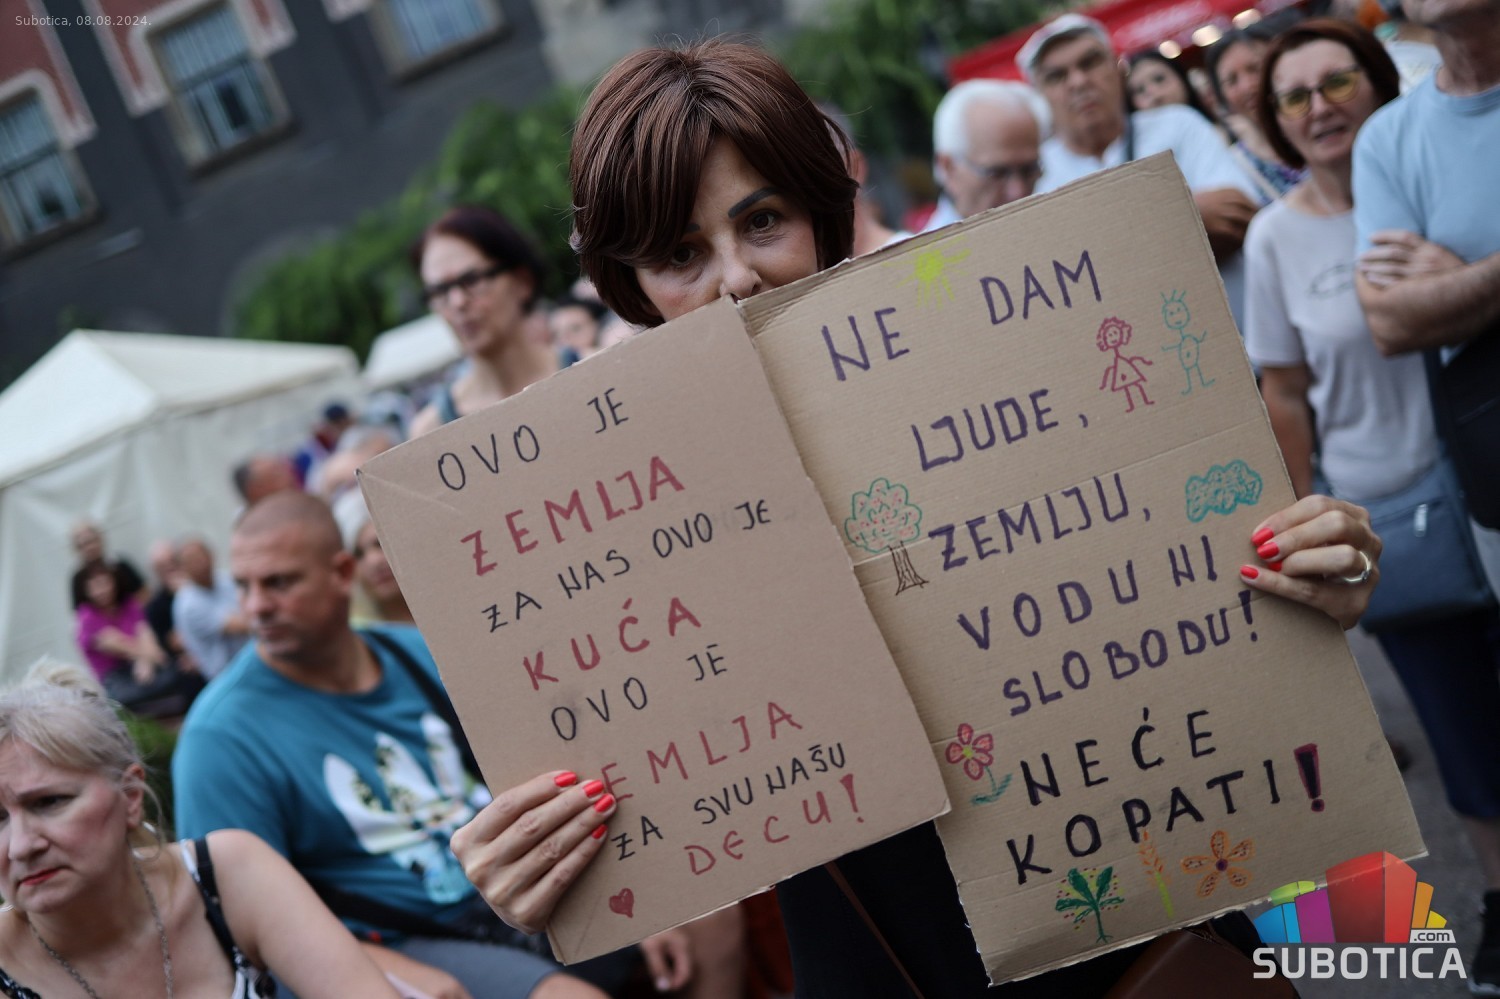 Subotica, 08.08.2024.
OVO JE
ZEMLJA
ZA NAS OVO JE
KUĆA
OVO JE
ZEMLJA
ZA SVU NAŠU
DECU!
NE DAM
LJUDE,
ZEMLJU,
VODU NI
SLOBODU!
NEĆE
KOPATI!
.com
SUBOTICA